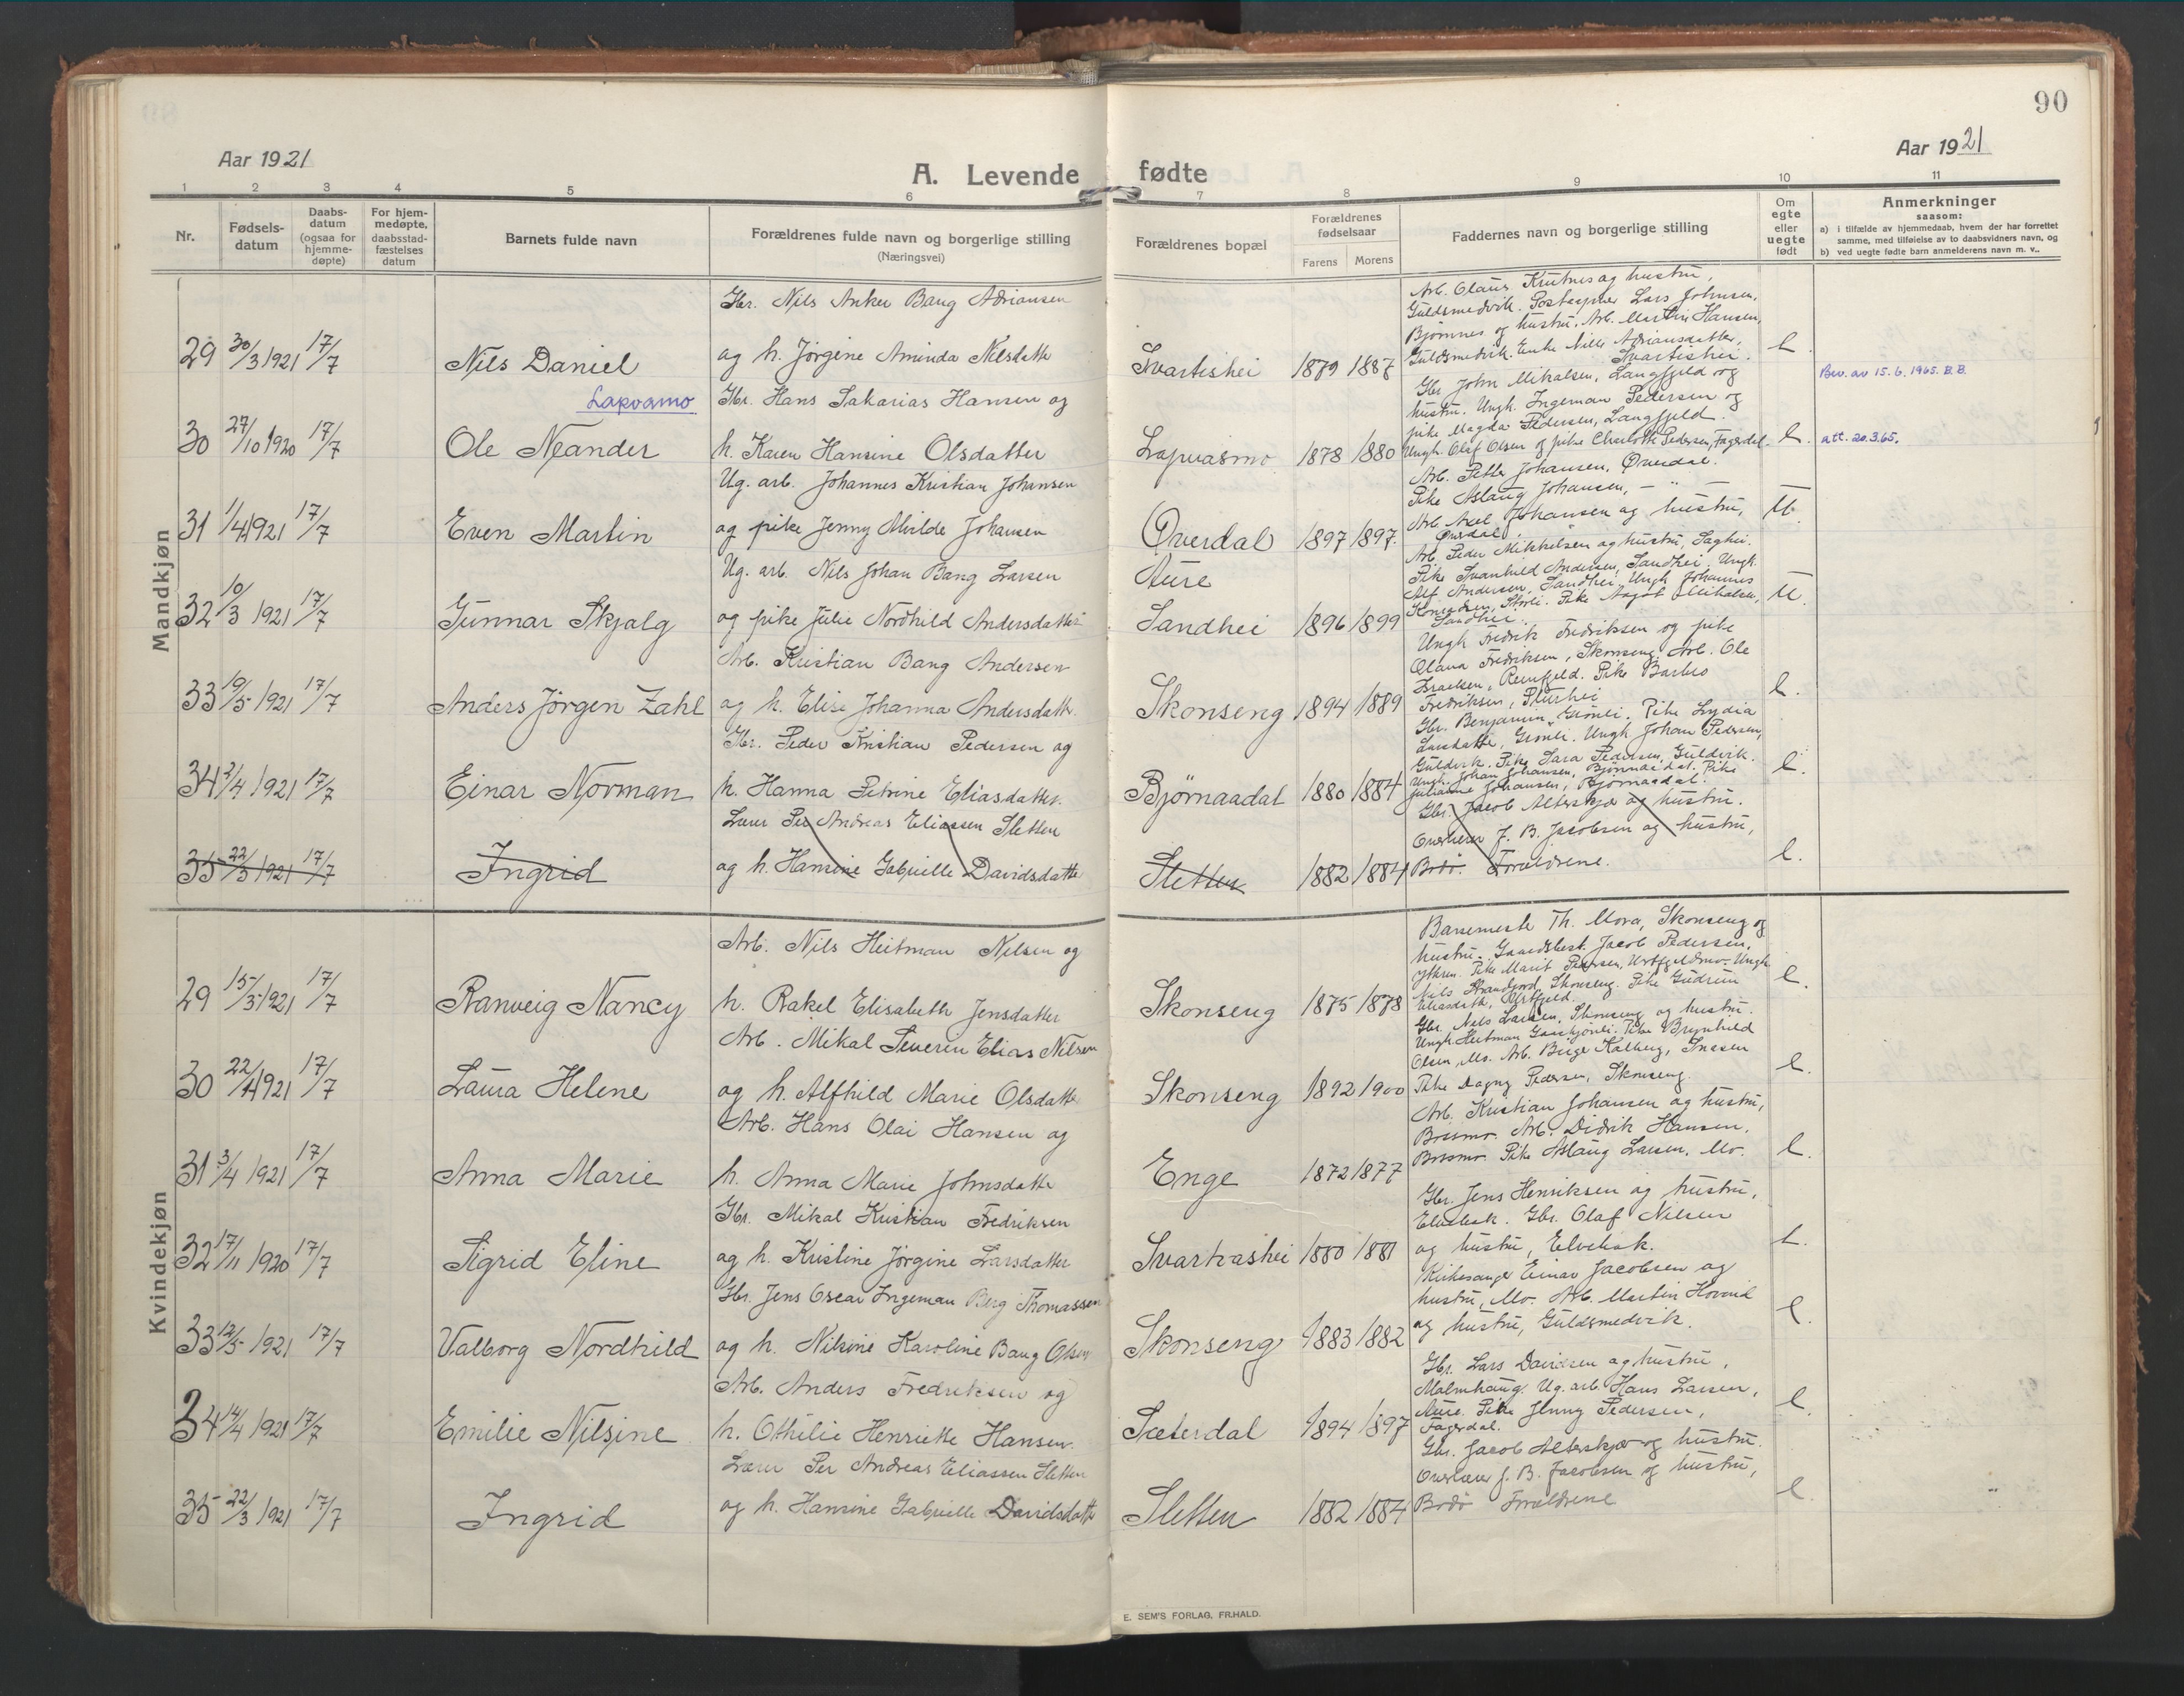 90
Aar 1921
A. Levende fødte
Aar 1921
1 2 3 4 5 6 7 8 9 10 11
Nr.
Fødsels-
datum
Daabs-
datum
(ogsaa for
hjemme-
døpte)
For hjem-
medøpte,
daabsstad-
fæstelses
datum
Barnets fulde navn
Forældrenes fulde navn og borgerlige stilling
(Næringsvei)
Forældrenes bopæl
Forældrenes
fødselsaar
Farens Morens
Faddernes navn og borgerlige stilling
Om
egte
eller
uegte
født
Anmerkninger
saasom:
a) i tilfælde av hjemmedaab, hvem der har forrettet
samme, med tilføielse av to daabsvidners navn, og
b) ved uegte fødte barn anmelderens navn m. v..
Mandkjøn
29 30/3 1921 17/7 Nils Daniel
Gbr. Nils Anker Bang Adriansen
og h. Jørgine Aminda Nilsdatter
Svartishei 1879 1887
Arb. Olaus Krutnes og hustru,
Guldsmedvik. Postaapner Lars Johnsen,
Bjørnnes og hustru. Arb. Martin Hansen,
Guldsmedvik. Enke Nille Adriansdatter,
Svartishei.
E.
30 27/10 1920 17/7 Ole Neander
Lapvasmo
Gbr. Hans Sakarias Hansen og
h. Karen Hansine Olsdatter
Lapvasmo 1878 1880
Gbr. John Mikalsen, Langfjeld og
hustru. Ungk. Ingeman Pedersen og
pike Magda Pedersen, Langfjeld.
Ungk. Olaf Olsen og pike Charlotte Pedersen, Fagerdal.
E.
Bev. av 15.6.1965. B.B.
att. 20.3.65.
31 1/4 1921 17/7 Even Martin
Ug. arb. Johannes Kristian Johansen
og pike Jenny Milde Johansen
Øverdal 1897 1897.
Arb. Petter Johansen, Øverdal.
Pike Aslaug Johansen, — " —
Arb. Axel Johansen og hustru,
Øverdal.
U.
32 10/3 1921 17/7 Gunnar Skjalg
Ug. arb. Nils Johan Bang Larsen
og pike Julie Nordhild Andersdatter
Aure
Sandhei 1896 1899
Arb. Peder Mikkelsen og hustru, Saghei.
Pike Svanhild Andersen, Sandhei, Ungk.
Alf Andersen, Sandhei, Ungk Johannes
Konradsen, Storli. Pike Aagot Mikalsen,
Sandhei.
U.
33 19/5 1921 17/7 Anders Jørgen Zahl
Arb. Kristian Bang Andersen
og h. Elise Johanna Andersdatter.
Skonseng 1894 1889
Ungk Fredrik Fredriksen og pike
Olava Fredriksen, Skonseng. Arb. Ole
Israelsen, Reinfjeld. Pike Barbro
Fredriksen,
E.
34 2/4 1921 17/7 Einar Norman
Gbr. Peder Kristian Pedersen og
h. Hanna Petrine Eliasdatter.
Bjørnaadal 1880 1884
Gbr. Benjamin Grønli. Pike Lydia
Larsdatter, Grønli. Ungk Johan Pedersen,
Guldvik. Pike Sara Pedersen, Guldvik.
Ungk. Johan Johansen, Bjørnaadal. Pike
Julianne Johansen, Bjørnaadal.
E.
35 22/3 1921 17/7 Ingrid
Lærer Per Andreas Eliassen Sletten
og h. Hansine Gabrielle Davidsdatter
Sletten 1882 1884
Gbr. Jacob Alterskjær og hustru.
Overlærer J. B. Jacobsen og hustru,
Bodø. Forældrene.
E.
Kvindekjøn
29 15/3 1921 17/7 Ranveig Nancy
Arb. Nils Heitman Nilsen og
h. Rakel Elisabeth Jensdatter
Skonseng 1875 1878
Banemester Th. Mora, Skonseng og
hustru. Gaardsbest. Jacob Pedersen,
Ytteren. Pike Marit Pedersen, Urtfjeldmo. Ungk
Nils Strandjord, Skonseng. Pike Gudrun
Eliasdatter, Urtfjeld.
E.
30 22/4 1921 17/7 Laura Helene
Arb. Mikal Severin Elias Nilsen
og h. Alfhild Marie Olsdatter
Skonseng 1892 1900
Gbr. Nils Larsen, Skonseng og hustru.
Ungk Heitman Gaaskjønli. Pike Brynhild
Olsen, Mo. Arb. Birger Kalberg,
Pike Dagny Pedersen, Skonseng.
E.
31 3/4 1921 17/7 Anna Marie
Arb. Hans Olai Hansen og
h. Anna Marie Johnsdatter
Enge 1872 1877
Arb. Kristian Johansen og hustru,
Bossmo. Arb. Didrik Hansen,
Bossmo. Pike Aslaug Larsen, Mo.
E.
32 17/11 1920 17/7 Sigrid Eline
Gbr. Mikal Kristian Fredriksen
og h. Kristine Jørgine Larsdatter
Svartvashei 1880 1881
Gbr. Jens Henriksen og hustru,
Elvebak. Gbr. Olaf Nilsen
og hustru, Elvebak.
E.
33 12/5 1921 17/7 Valborg Nordhild
Gbr. Jens Oscar Ingeman Berg Thomassen
og h. Nilsine Karoline Bang Olsen
Skonseng 1883 1882
Kirkesanger Einar Jacobsen og
hustru, Mo. Arb. Martin Hovind
og hustru, Guldsmedvik.
E.
34 14/4 1921 17/7 Emilie Nilsine
Arb. Anders Fredriksen og
h. Othilie Henriette Hansen.
Sæterdal 1894 1897
Gbr. Lars Davidsen og hustru,
Malmhaug. Ug. arb Hans Larsen,
Aure. Pike Jenny Pedersen,
Fagerdal.
E.
35 22/3 1921 17/7 Ingrid
Lærer Per Andreas Eliassen Sletten
og h. Hansine Gabrielle Davidsdatter
Sletten 1882 1884
Gbr. Jacob Alterskjær og hustru.
Overlærer J. B. Jacobsen og hustru,
Bodø Forældrene
E.
E. SEM'S FORLAG, FR.HALD.